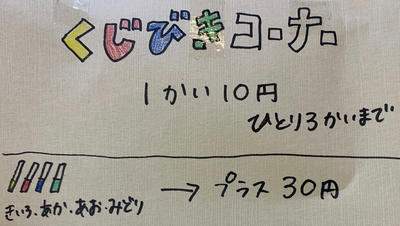 くじびきコーナー
1かい10円
ひとり3かいまで
→プラス30円
きいろ・あか・あお・みどり